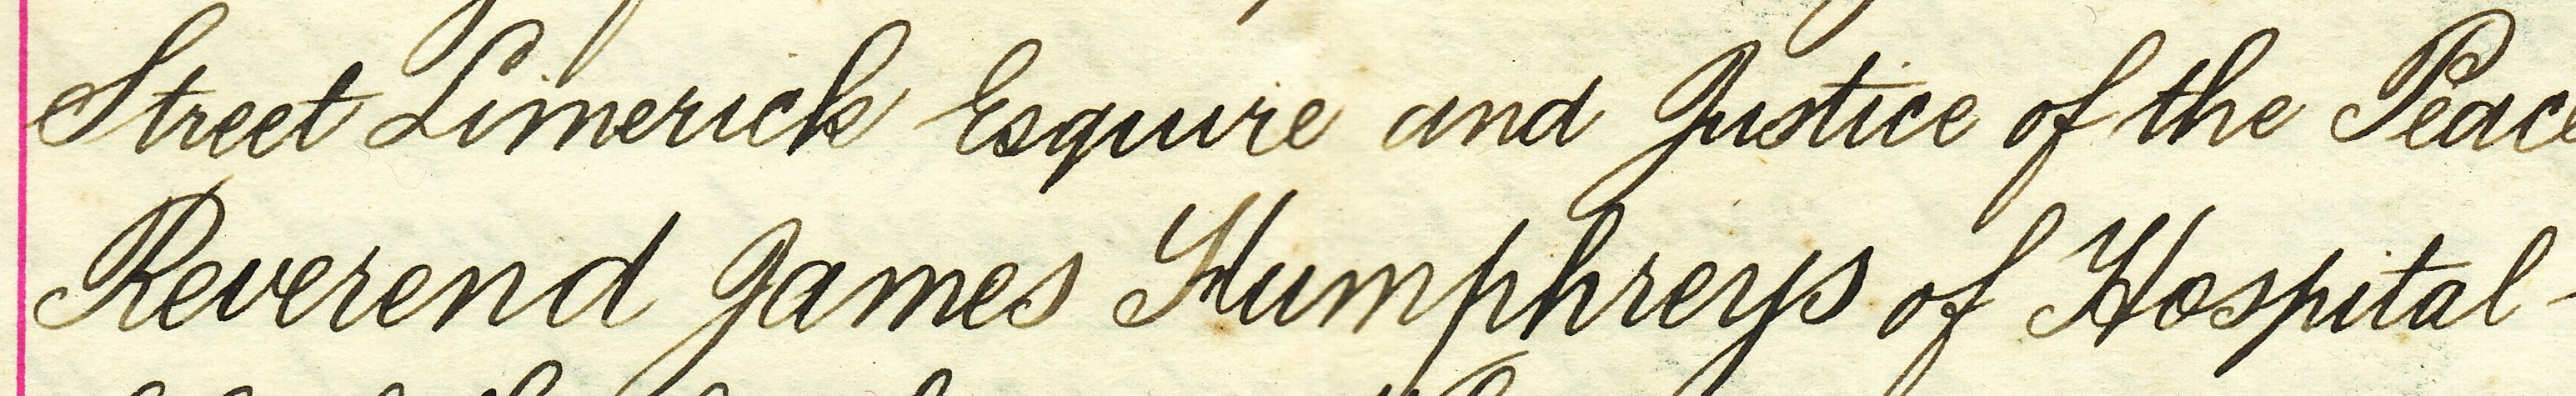 Street Limerick Esquire and Justice of the Peace
Reverend James Humphreys of Hospital -